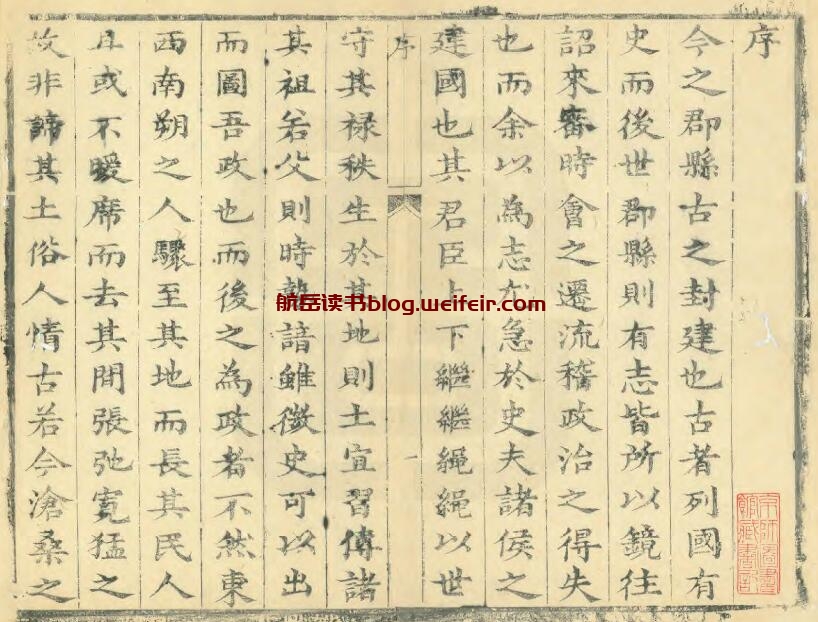 序
今之郡縣古之封建也古者列國有
史而後世郡縣則有志皆所以鏡往
詔來審時會之遷流稽政治之得失
也而余以為志尤急於史夫諸侯之
建國也其君臣上下繼繼繩繩以世
序
一
守其禄秩生於其地則土宜習傳諸
其祖若父則時勢諳雖微史可以出
而圖吾政也而後之為政者不然東
西南朔之人驟至其地而長其民人
且或不暖席而去其間張弛寬猛之
故非諦其土俗人情古若今滄桑之
京師圖書
館藏書記
航岳读书blog.weifeir.com